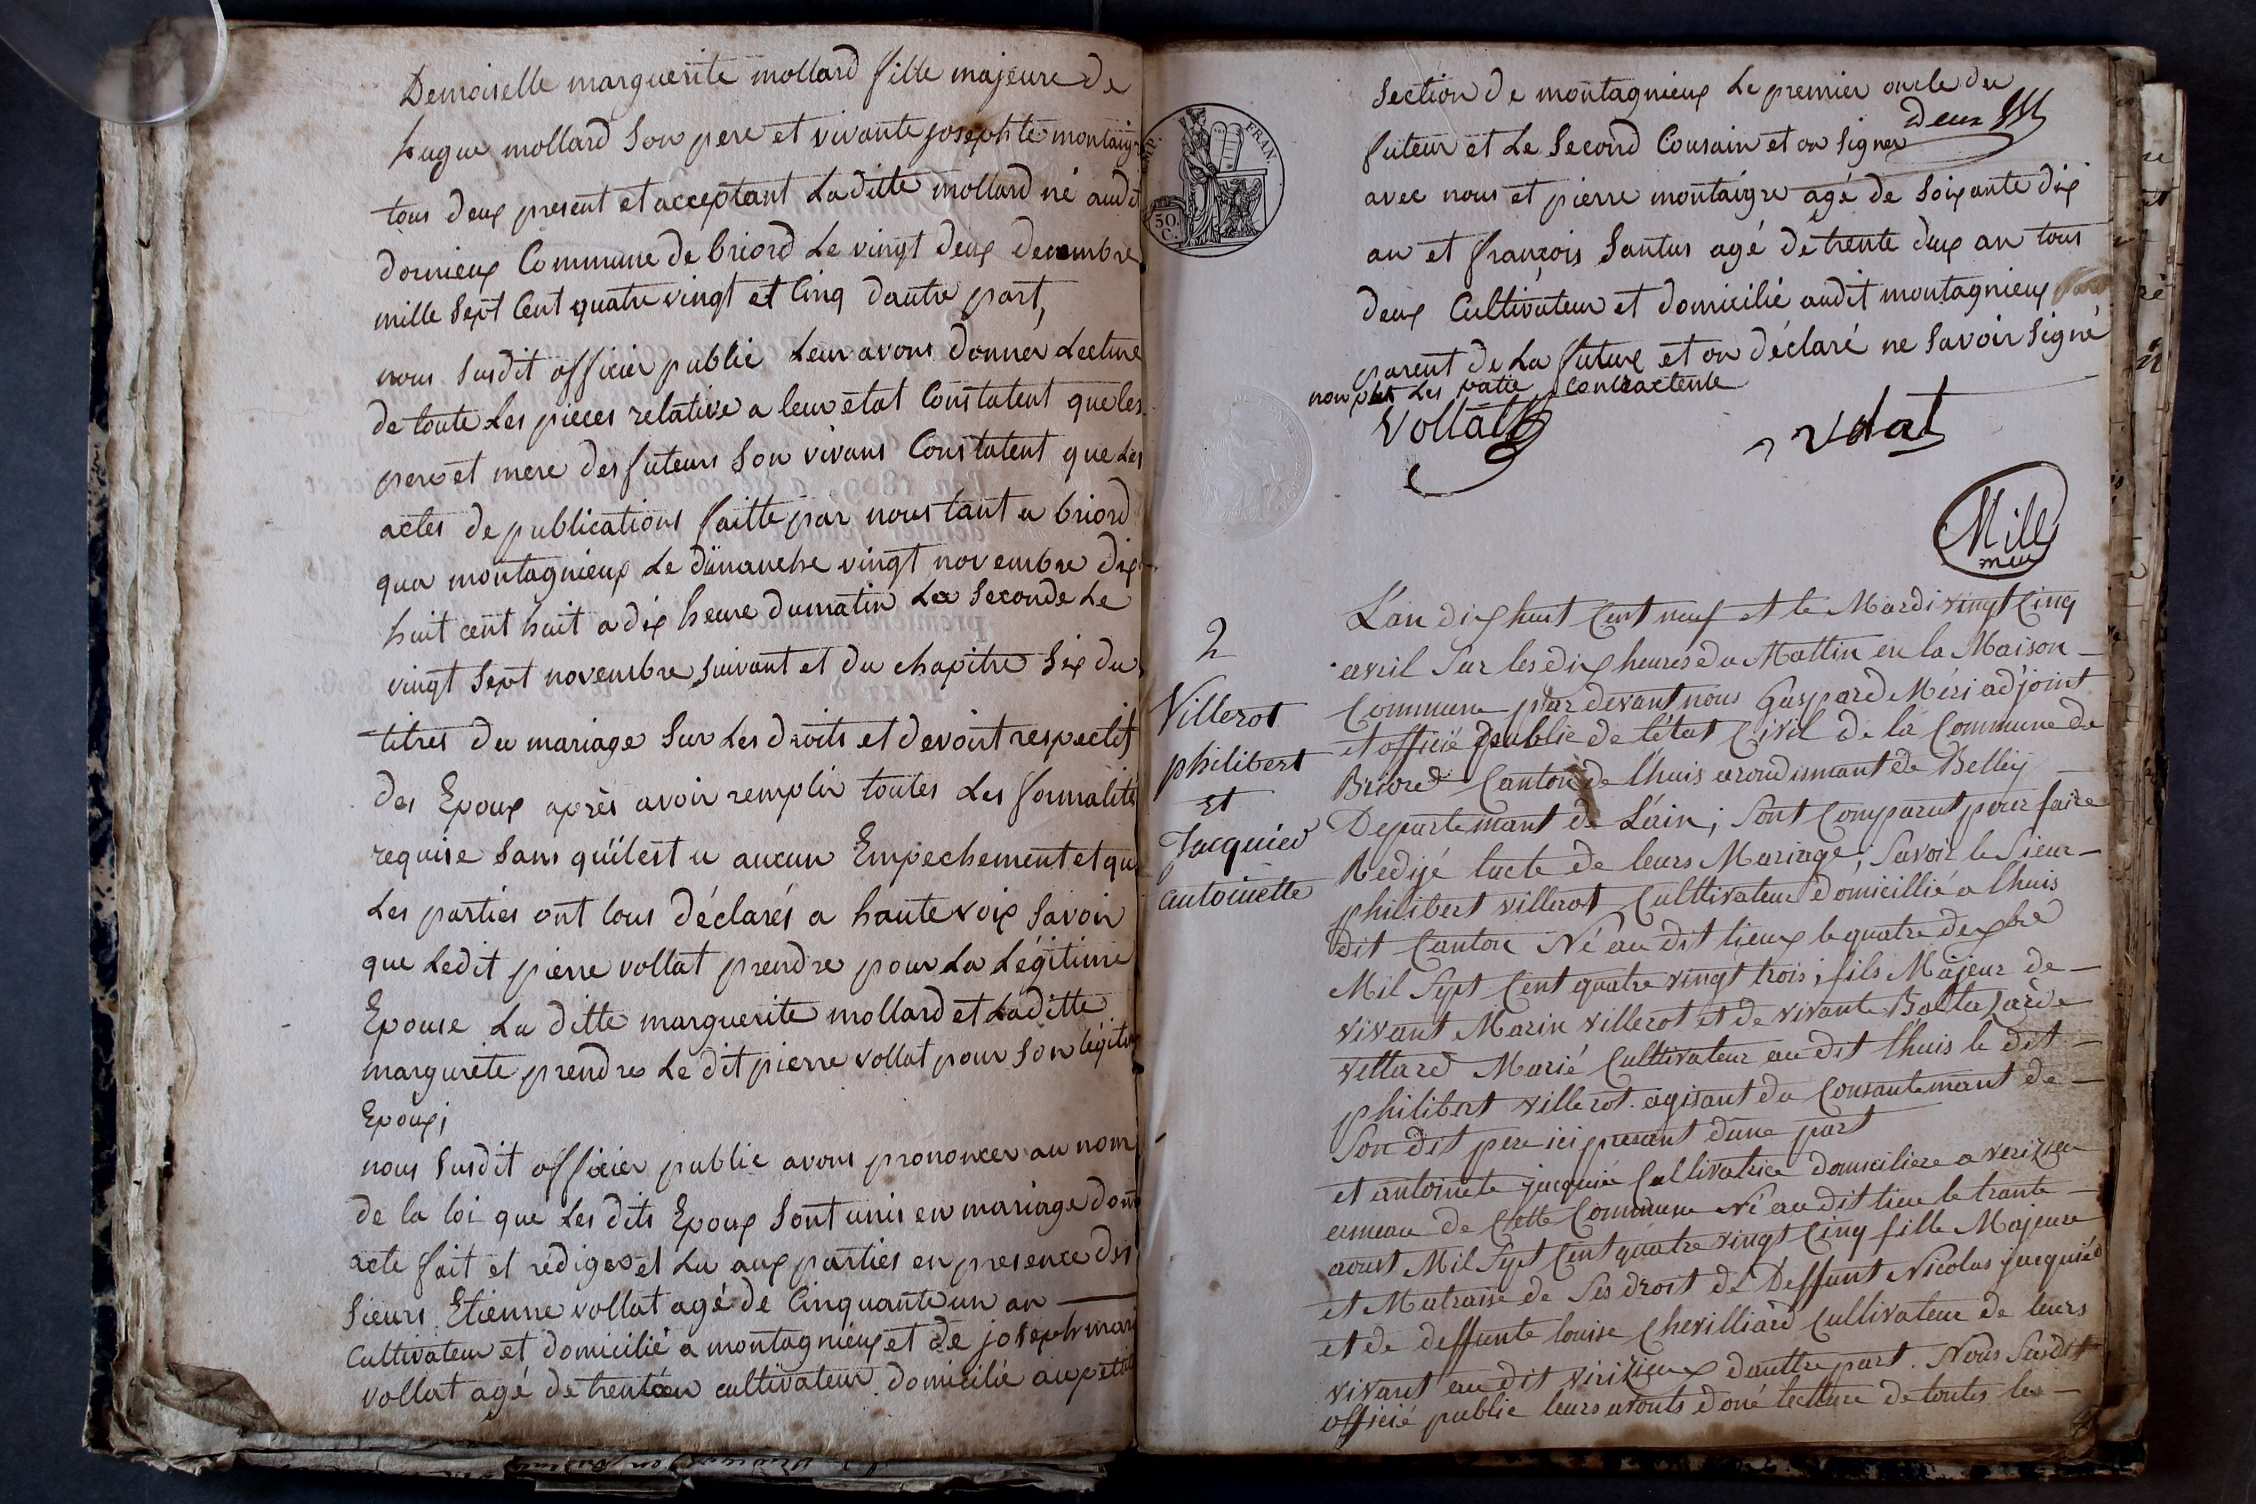 Demoiselle marguerite mollard fille majeure de
hugue mollard son pere et vivante josephte montaigr
tous deux present et acceptant La ditte mollard né audit
dornieux Commune de briord Le vingt deux decembre
mille sept Cent quatre vingt et Cinq dautre part,
nous susdit officier public Leur avons donner Lecture
de toute Les pieces relative a leur état Constatent que les
pere et mere des futeurs son vivans Constatent que Les
actes de publications faitte par nous tant a briord
qua montagnieux Le dimanche vingt novembre dix
huit cent huit a dix heure du matin La seconde Le
vingt sept novembre suivant et du chapitre six du
titres du mariage sur Les droits et devoirt respectif
des Epoux après avoir remplir toutes Les formalité
requise sans quil est u aucun Empechement et que
Les parties ont tous déclarés a haute voix savoir
que Ledit pierre vollat prendre pour La Légitime
Epouse La ditte marguerite mollard et Laditte
margurite prendre Le dit pierre vollat pour son légitim
Epoux;
nous susdit officier public avons prononcer au nom
de la loi que Les dits Epoux sont unis en mariage dont
acte fait et rediger et Lu aux parties en presence des
sieurs Etienne vollat agé de Cinquante un an
Cultivateur et domicilié a montagnieux et de joseph mari
vollat agé de trente an cultivateur domicilié au petit
section de montagnieux Le premier oncle du
futeur et Le second Cousain et on signer deux
avec nous et pierre montaigre agé de soixante dix
an et françois santus agé de trente deux an tous
deux Cultivateur et domicilié audit montagnieux
parent de La future et on déclaré ne savoir signé
non plus Les patie contractente
Vollat
vdat
Mill
meur
IMP. FRAN.
50 C.
2
Villerot
philibert
et
Jacquier
antoinette
L'an dix huit Cent neuf et le Mardi vingt Cinq
avril sur les dix heures du Mattin en la Maison
Commune par devant nous Gaspard Méri adjoint
et officié public de l'état Civil de la Commune de
Briord Canton de lhuis arondismant de Belley
Departemant de L'ain; sont Comparut pour faire
Redijé lacte de leurs Mariage; savoir le sieur
philibert villerot Culttivateur domicillié a lhuis
dit Canton Né au dit lieux le quatre dexbre
Mil Sept Cent quatre vingt trois; fils Majeur de
vivant Marin villerot et de vivante Baltazarde
vettard Marié Culttivateur au dit lhuis le dit
philibert villerot agisant du Consantemant de
Son dit pere ici present dune part
et antoinete jacquié Cultivatrice domiciliere a verizieu
ameau de Cette Commune Né au dit lieu le trante
aoust Mil Sept Cent quatre vingt Cinq fille Majeure
et Matraisse de ses droit de Deffunt Nicolas jacquié
et de deffunte louise Chevilliard Cultivateur de leurs
vivant au dit virizieux dauttre part. Nous Susdit
officié public leurs avonts doné lectture de toutes les